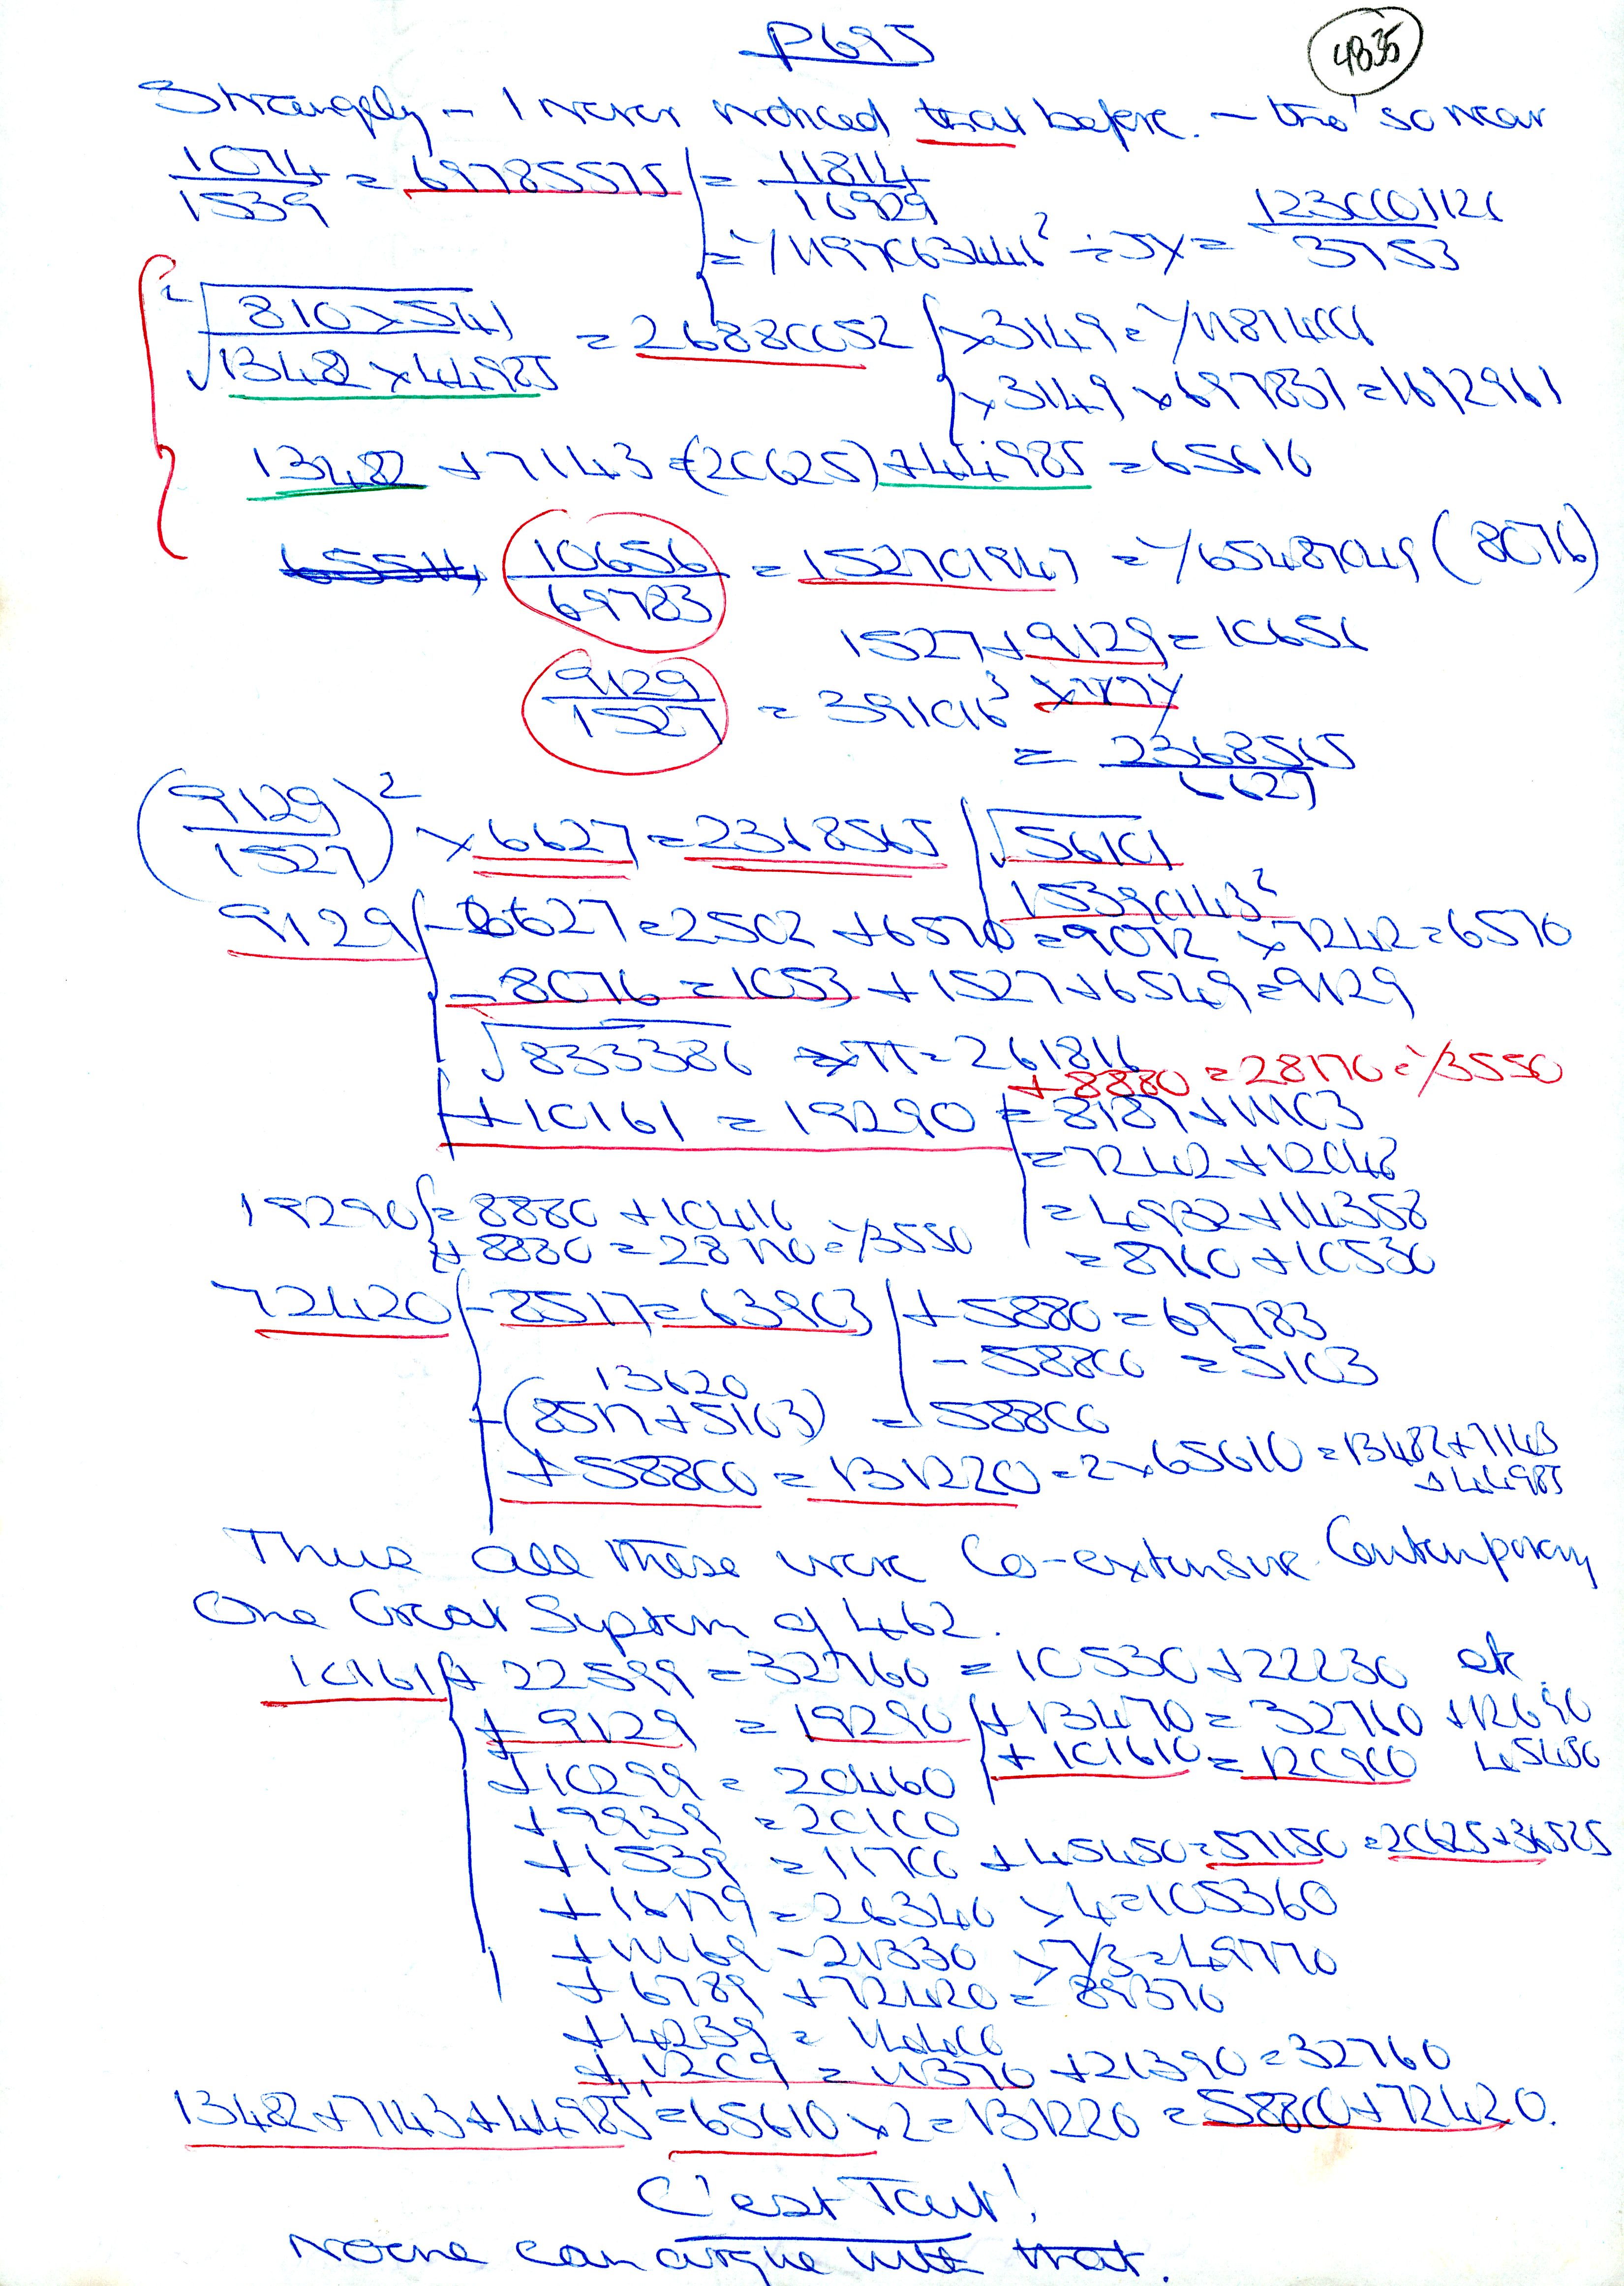 P695
4835
Strangely - I never noticed that before. - tho' so near
1074/1539 = 69785575 = 11814/16929
810 x 541
13482 x 44985 = 26880052 x 3149 =
x 3149 x 697831 = 1692961
13482 + 7143 = (20625) + 44985 = 65610
10656/69783 = 152701947 = (8076)
1527 + 9129 = 10656
9129/1527 = 391016³
= 2368565/6627
(9129/1527)² x 6627 = 2368565
9129 - 6627 = 2502 + 6570 = 9072 x 72412 = 6570
- 8076 = 1053 + 1527 + 6549 = 9129
√833386 x π = 261811
+ 8880 = 28170 = 1/3550
+ 10161 = 19290 = 8187 + 11103
= 7242 + 12048
= 4932 + 14358
= 8760 + 10530
19290 = 8880 + 10410
+ 8880 = 28170 = 1/3550
72420 - 8517 = 63903 + 5880 = 69783
- 58800 = 5103
13620
- (8517 + 5103) = 58800
+ 58800 = 131220 = 2 x 65610 = 13482 + 7143
+ 44985
Thus all these were Co-extensive Contemporary
One Great System of 462.
10161 + 22599 = 32760 = 10530 + 22230 etc
+ 9129 = 19290 + 13470 = 32760 + 12690
+ 101610 = 120900 45450
+ 10299 = 20460
+ 9939 = 20100
+ 1539 = 11700 + 45450 = 57150 = 20625 + 36525
+ 16179 = 26340 x 4 = 105360
+ 11169 = 21330 x 7/3 = 49770
+ 6789 + 72420 = 89370
+ 4239 = 14400
+ 1209 = 11370 + 21390 = 32760
13482 + 7143 + 44985 = 65610 x 2 = 131220 = 58800 + 72420.
C'est Tout!
Noone can argue with that.